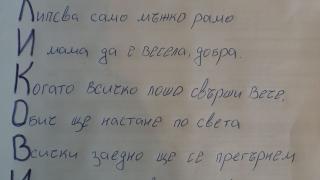 Липсва само мъжко рамо
И мама да е весела, добра.
Когато всичко лошо свърши вече,
Обич ще настане по света
Всички заедно ще се прегърнем
И